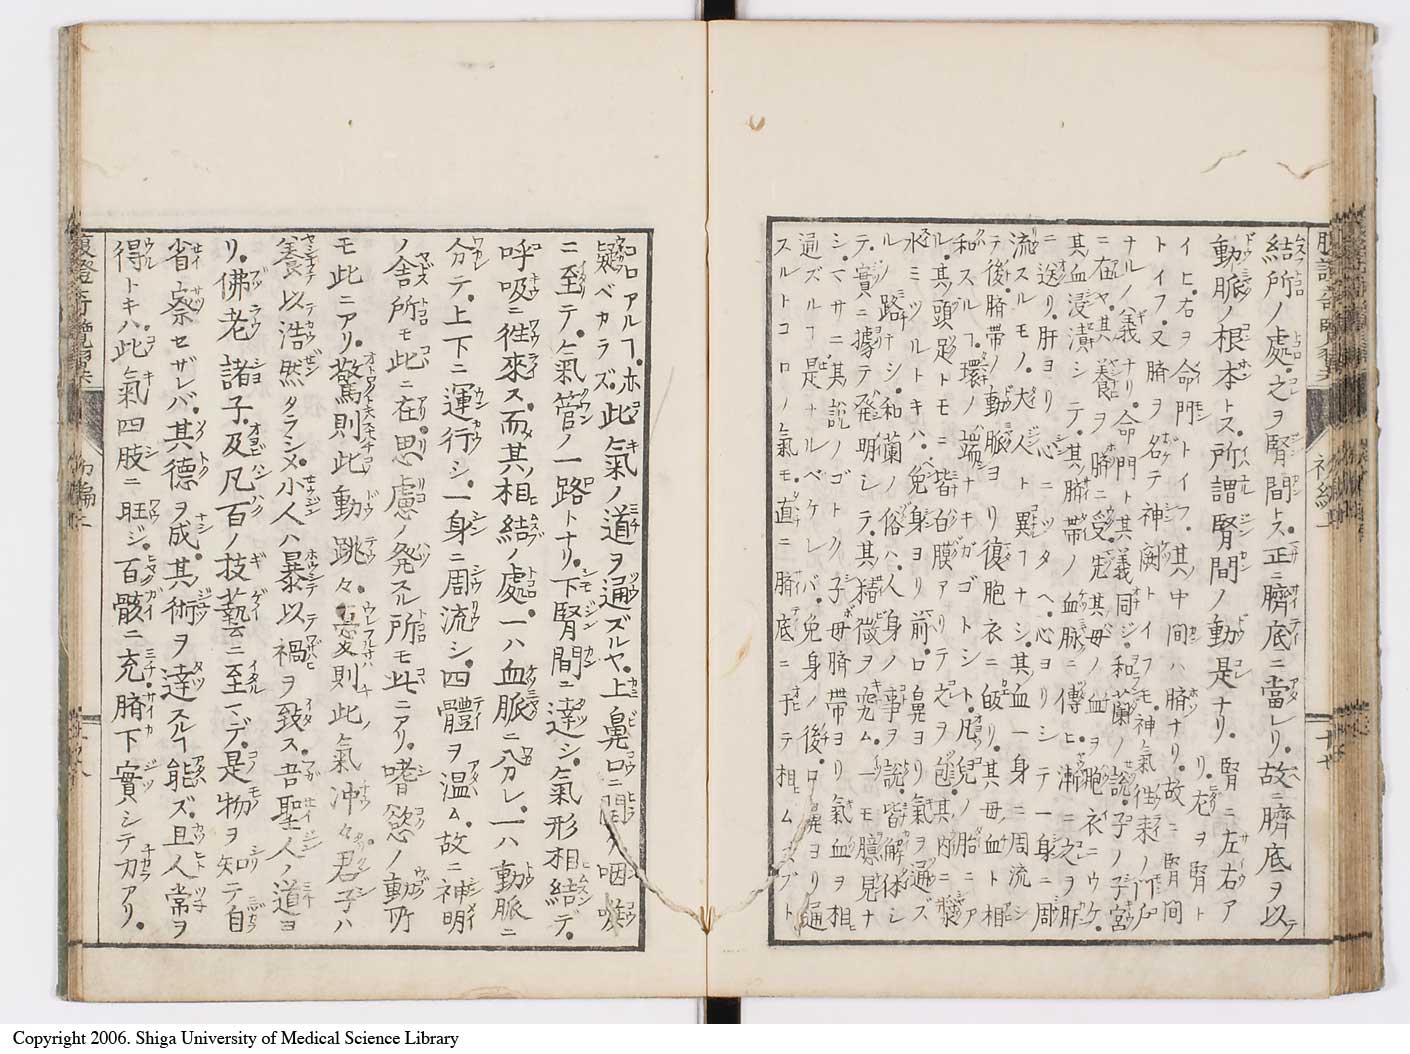 結所ノ處。之ヲ腎間トス。正ニ臍底ニ當レリ。故ニ臍底ヲ以
動脈ノ根本トス。所謂腎間ノ動是ナリ。腎ニ左右ア
リ。左ヲ腎ト
イヒ。右ヲ命門トイフ。其中間ハ臍ナリ。故ニ腎間
トイフ。又臍ヲ名テ神闕トイフモ。神氣往来ノ門戸
ナルノ義ナリ。命門ト其義同ジ。和蘭ノ説。子ノ子宮
ニ在ヤ。其養ヲ臍ニ受。先其母ノ血ヲ胞衣ニウケ。
其血浸漬シテ。其臍帯ノ血脈ニ傳ヒ。漸ニ之ヲ肝
ニ送リ。肝ヨリ心ニツタヘ。心ヨリシテ一身ニ周
流スルモノ。大人ト異フナシ。其血一身ニ周流シ
テ後。臍帯ノ動脈ヨリ復胞衣ニ皈リ。其母血ト相
和スルヿ。環ノ端ナキガゴトシト。凡兒ノ胎ニア
ル。其頭足トモニ皆白膜アリテ之ヲ包。其内ニ漿
水ミツルトキハ。兒身ヨリ前。口鼻ヨリ氣ヲ通ズ
ルノ路ナシ。和蘭ノ俗ハ。人身ノ事ヲ説。皆解体シ
テ。實ニ據テ発明シテ。其精微ヲ究ム。一モ臆見ナ
シ。マサニ其説ノゴトク。子母臍帯ヨリ氣血ヲ相
通ズルヿ是ナルベケレバ。兒身ノ後。口鼻ヨリ通
スルトコロノ氣モ。直ニ臍底ニ于テ相ムスブト
コロアルヿ。亦
疑ベカラズ。此氣ノ道ヲ通ズルヤ。上鼻口ニ開ノ咽喉
ニ至テ。氣管ノ一路トナリ。下腎間ニ達シ。氣形相結デ。
呼吸ニ往來ス。而其相結ノ處。一ハ血脈ニ分レ。一ハ動脈ニ
分テ。上下ニ運行シ。一身ニ周流シ。四體ヲ温ム。故ニ神明
ノ舎所モ此ニ在。思慮ノ発スル所モ此ニアリ。嗜慾ノ動所
モ此ニアリ。驚則此動跳々。憂則此氣沖々。君子ハ
養以浩然タラシメ。小人ハ暴以禍ヲ致ス。吾聖人ノ道ヨ
リ。佛老諸子。及凡百ノ技藝ニ至マデ。是物ヲ知テ自
省察セザレバ。其德ヲ成。其術ヲ達スルヿ能ズ。且人常ヲ
得トキハ。此氣四肢ニ旺シ。百骸ニ充。臍下實シテ力アリ。
Copyright 2006. Shiga University of Medical Science Library